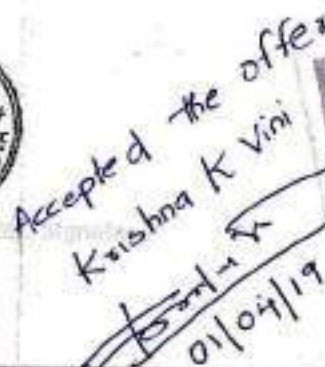 Accepted the offer
Krishna K Vini
01/04/19